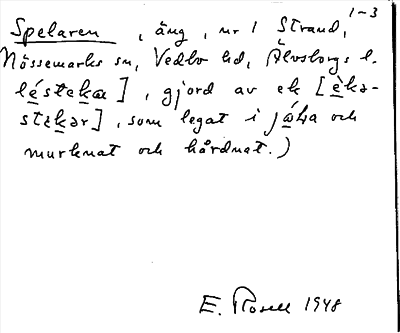 1-3
Spelaren, äng, nr 1 Strand,
Nössemarks sn, Vedbo hd, Älvsborgs l.
léstekæ], gjord av ek [èkə-
stekər], som legat i jǿka och
murknat och hårdnat.)
E. Rosell 1948